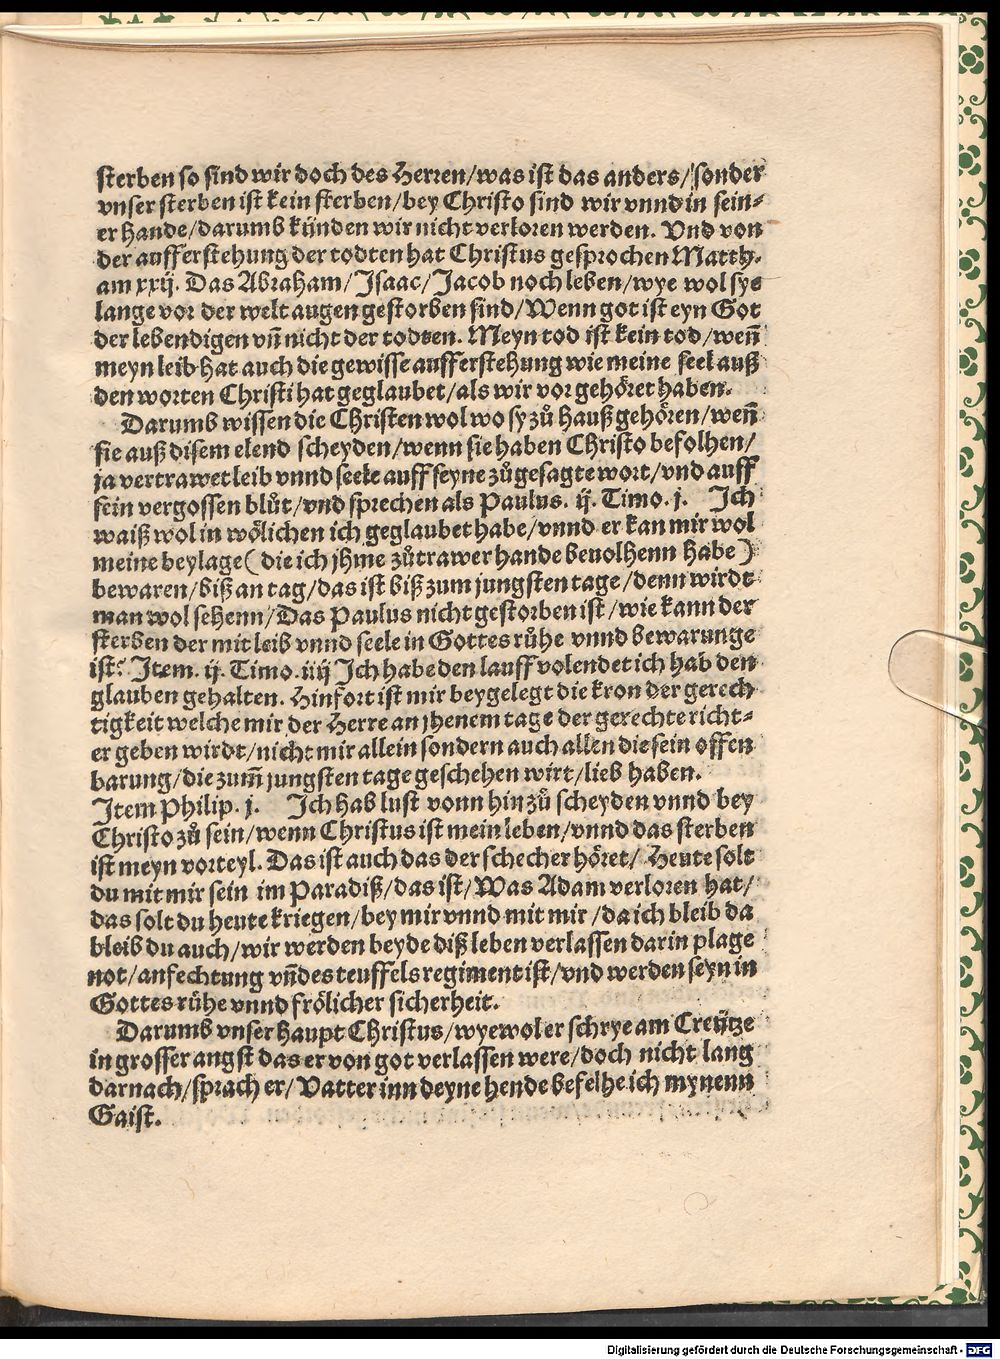 sterben so sind wir doch des Herren/was ist das anders/sonder
vnser sterben ist kein sterben/bey Christo sind wir vnnd in sein-
er hande/darumb künden wir nicht verloren werden. Vnd von
der aufferstehung der todten hat Christus gesprochen Matth.
am xxij. Das Abraham/Isaac/Jacob noch leben/wye wol sye
lange vor der welt augen gestorben sind/Wenn got ist eyn Got
der lebendigen vn̄ nicht der todten. Meyn tod ist kein tod/wen̄
meyn leib hat auch die gewisse aufferstehung wie meine seel auß
den worten Christi hat geglaubet/als wir vor gehöret haben.
Darumb wissen die Christen wol wo sy zů Hauß gehören/wen̄
sie auß disem elend scheyden/wenn sie haben Christo befolhen/
ja vertrawet leib vnnd seele auff seyne zůgesagte wort/vnd auff
sein vergossen blůt/vnd sprechen als Paulus. ij. Timo. j. Ich
waiß wol in wölichen ich geglaubet habe/vnnd er kan mir wol
meine beylage (die ich jhme zů trawer hande beuolhenn habe)
bewaren/biß an tag/das ist biß zum jungsten tage/denn wirdt
man wol sehenn/Das Paulus nicht gestorben ist/wie kann der
sterben der mit leib vnnd seele in Gottes růhe vnnd bewarunge
ist? Item. ij. Timo. iiij Ich habe den lauff volendet ich hab den
glauben gehalten. Hinfort ist mir beygelegt die kron der gerech
tigkeit welche mir der Herre an jhenem tage der gerechte richt-
er geben wirdt/nicht mir allein sondern auch allen die sein offen
barung/die zum̄ jungsten tage geschehen wirt/lieb haben.
Item Philip. j. Ich hab lust vonn hin zů scheyden vnnd bey
Christo zů sein/wenn Christus ist mein leben/vnnd das sterben
ist meyn vorteyl. Das ist auch das der schecher höret/ Heute solt
du mit mir sein im Paradiß/das ist/Was Adam verloren hat/
das solt du heute kriegen/bey mir vnnd mit mir/da ich bleib da
bleib du auch/wir werden beyde diß leben verlassen darin plage
not/anfechtung vn̄ des teuffels regiment ist/vnd werden seyn in
Gottes růhe vnnd frölicher sicherheit.
Darumb vnser haupt Christus/wyewol er schrye am Creütze
in grosser angst das er von got verlassen were/doch nicht lang
darnach/sprach er/Vatter inn deyne hende befelhe ich mynenn
Gaist.
Digitalisierung gefördert durch die Deutsche Forschungsgemeinschaft - DFG